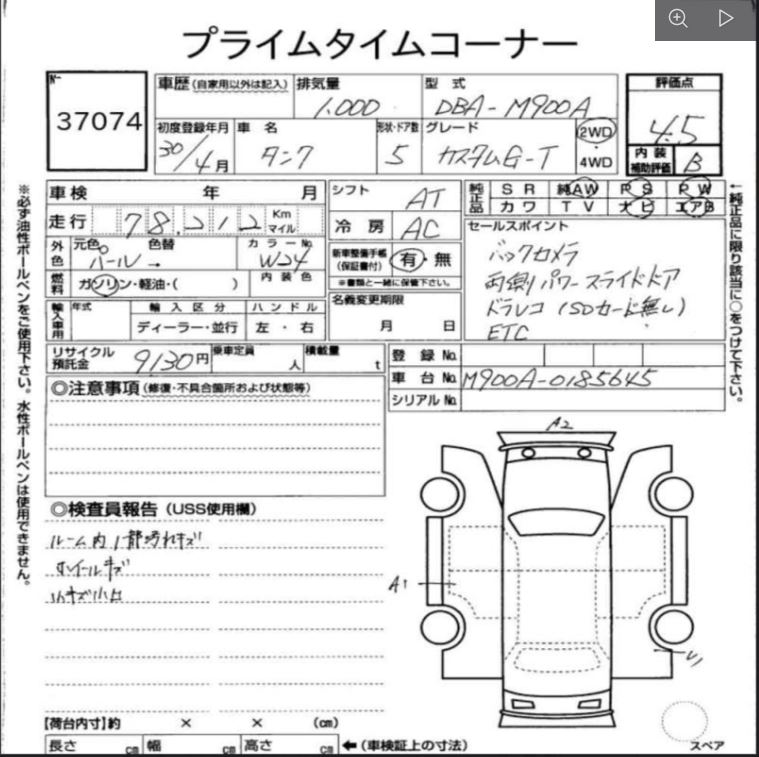 プライムタイムコーナー
No.
37074
車歴(自家用以外は記入)
排気量
1,000
型式
DBA-M900A
評価点
4.5
初度登録年月
30/4月
車名
タンク
形状・ドア数
5
グレード
カスタムG-T
2WD
・
4WD
内装
補助評価
B
車検 年 月
シフト
AT
純正品
SR 純AW PS PW
カワ TV ナビ エアB
走行
78,212
Km
マイル
冷房
AC
セールスポイント
バックカメラ
両側パワースライドドア
ドラレコ(SDカード無し)
ETC
外色
元色
色替
パール→
カラーNo.
W24
新車整備手帳
(保証書付)
有・無
※書類と一緒に保管下さい。
燃料
ガソリン・軽油・( )
内装色
名義変更期限
月 日
輸入車用
年式
輸入区分
ハンドル
ディーラー・並行
左・右
リサイクル
預託金
9130円
乗車定員
人
積載量
t
登録No.
車台No.
M900A-0185645
シリアルNo.
◎注意事項(修復・不具合箇所および状態等)
◎検査員報告(USS使用欄)
ルーム内1部汚れキズ
ホイールキズ
小キズ小凹
A2
A1
U1
スペア
【荷台内寸】約 × × (cm)
長さ cm 幅 cm 高さ cm ←(車検証上の寸法)
※必ず油性ボールペンをご使用下さい。水性ボールペンは使用できません。
←純正品に限り該当に○をつけて下さい。